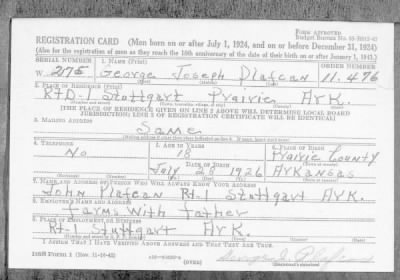 FORM APPROVED
REGISTRATION CARD (Men born on or after July 1, 1924, and on or before December 31, 1924)
(Also for the registration of men as they reach the 18th anniversary of the date of their birth on or after January 1, 1943.)
SERIAL NUMBER 1. NAME (Print) ORDER NUMBER
W 275 George Joseph Plafcan 11,476
2. PLACE OF RESIDENCE (Print)
Rt. 1 Stuttgart Prairie Ark.
(THE PLACE OF RESIDENCE GIVEN ON LINE 2 ABOVE WILL DETERMINE LOCAL BOARD
JURISDICTION; LINE 2 OF REGISTRATION CERTIFICATE WILL BE IDENTICAL)
3. MAILING ADDRESS
Same
4. TELEPHONE 5. AGE IN YEARS 6. PLACE OF BIRTH
No 18 Prairie County
DATE OF BIRTH
July 28 1926 Arkansas
7. NAME AND ADDRESS OF PERSON WHO WILL ALWAYS KNOW YOUR ADDRESS
John Plafcan Rt. 1 Stuttgart Ark.
8. EMPLOYER'S NAME AND ADDRESS
Farms with father
9. PLACE OF EMPLOYMENT OR BUSINESS
Rt. 1 Stuttgart Ark.
I AFFIRM THAT I HAVE VERIFIED ABOVE ANSWERS AND THAT THEY ARE TRUE.
DSS Form 1 (Rev. 11-16-42) (OVER)